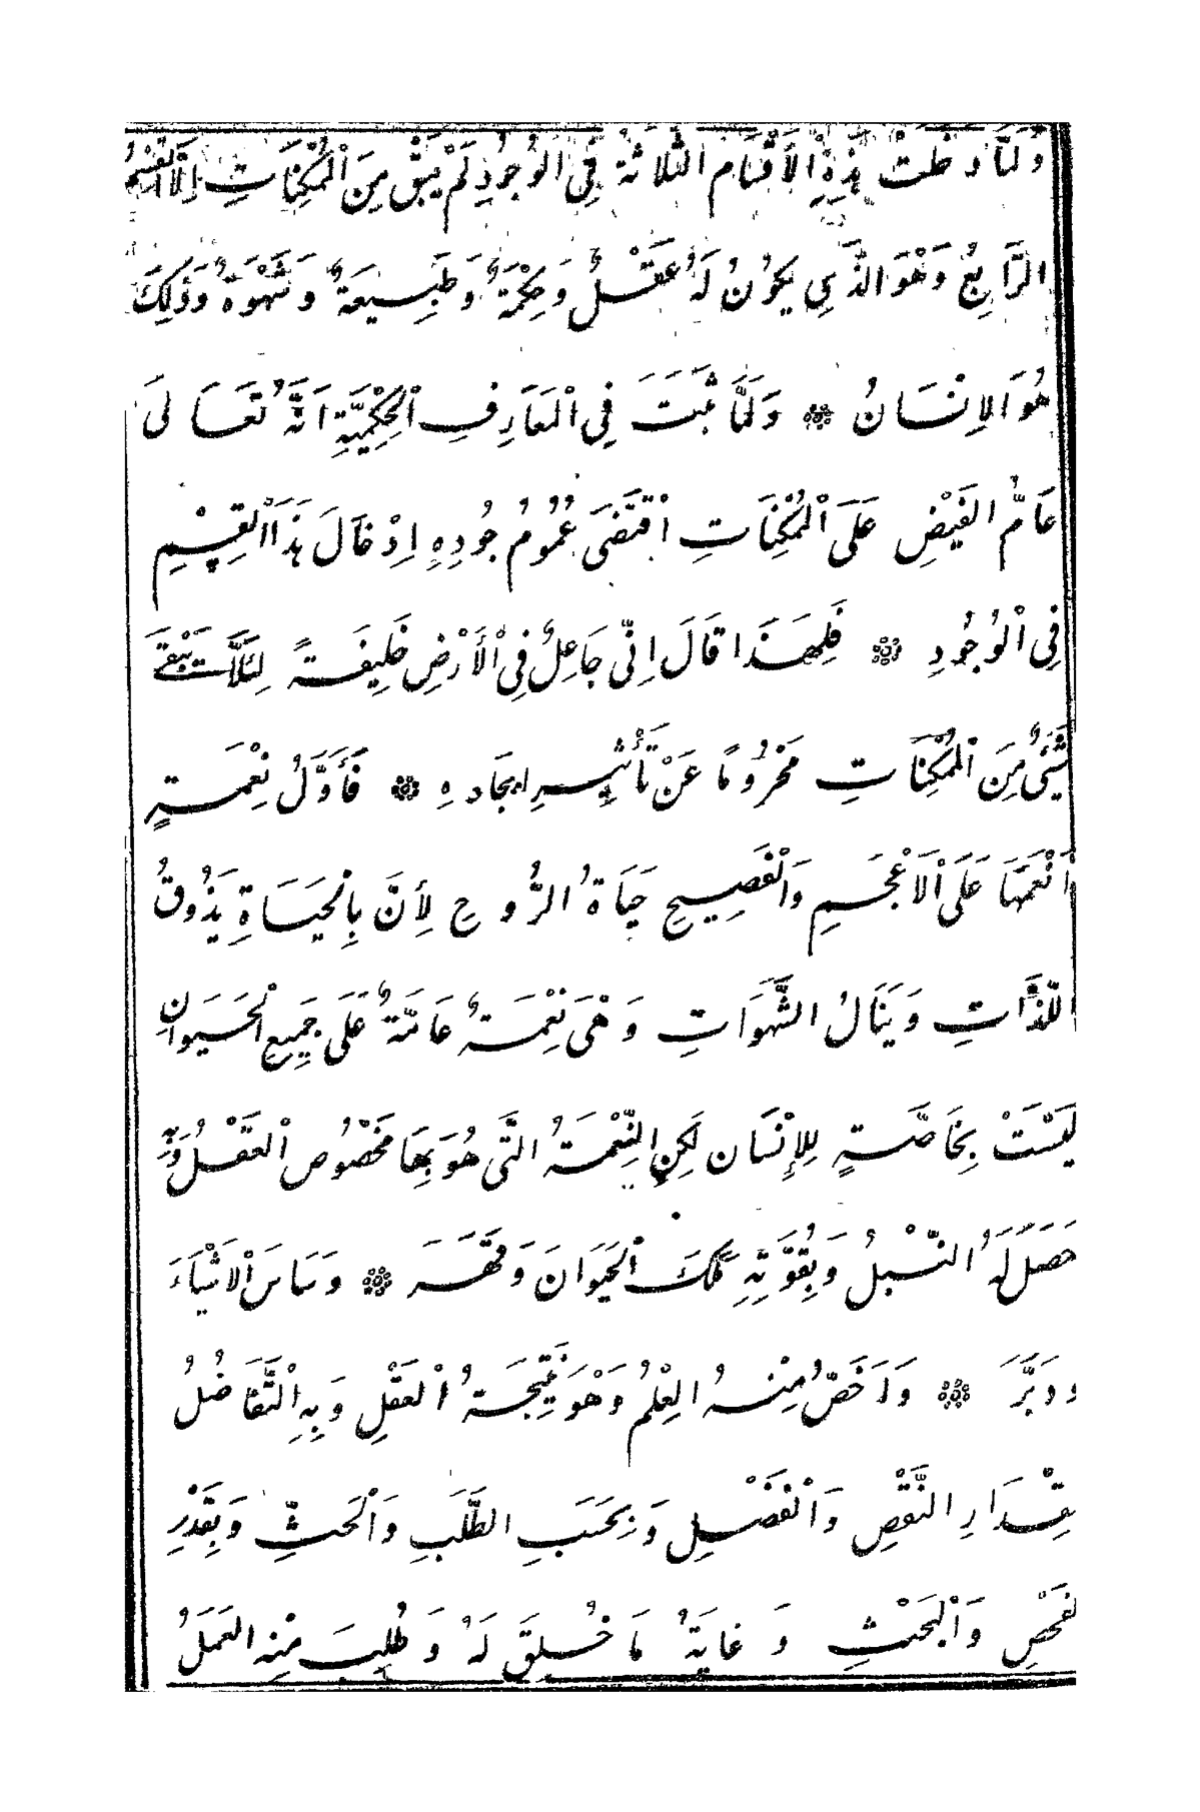 وَلَمَّا دَخَلَتْ هٰذِهِ الْأَقْسَامُ الثَّلَاثَةُ فِي الْوُجُودِ لَمْ يَبْقَ مِنَ الْمُمْكِنَاتِ إِلَّا الْقِسْمُ
الرَّابِعُ وَهُوَ الَّذِي يَكُونُ لَهُ عَقْلٌ وَحِكْمَةٌ وَطَبِيعَةٌ وَشَهْوَةٌ وَذَلِكَ
هُوَ الْاِنْسَانُ ۞ وَلَمَّا ثَبَتَ فِي الْمَعَارِفِ الْحِكْمِيَّةِ اَنَّهُ تَعَالَى
عَامُّ الْفَيْضِ عَلَى الْمُمْكِنَاتِ اقْتَضَى عُمُومُ جُودِهِ إِدْخَالَ هَذَا الْقِسْمِ
فِي الْوُجُودِ ۞ فَلِهَذَا قَالَ اِنِّي جَاعِلٌ فِي الْأَرْضِ خَلِيفَةً لِئَلَّا يَبْقَى
شَيْءٌ مِنَ الْمُمْكِنَاتِ مَحْرُومًا عَنْ تَأْثِيرِ اِيجَادِهِ ۞ فَأَوَّلُ نِعْمَةٍ
اَنْعَمَهَا عَلَى الْاَعْجَمِ وَالْفَصِيحِ حَيَاةُ الرُّوحِ لِأَنَّ بِالْحَيَاةِ يَذُوقُ
اللَّذَّاتِ وَيَنَالُ الشَّهَوَاتِ وَهِيَ نِعْمَةٌ عَامَّةٌ عَلَى جَمِيعِ الْحَيَوَانِ
لَيْسَتْ بِخَاصَّةٍ لِلْإِنْسَانِ لَكِنِ النِّعْمَةُ الَّتِي هُوَ بِهَا مَخْصُوصٌ الْعَقْلُ وَبِهِ
حَصَلَ لَهُ النُّبْلُ وَبِقُوَّتِهِ مَلَكَ الْحَيَوَانَ وَقَهَرَ ۞ وَسَاسَ الْاَشْيَاءَ
وَدَبَّرَ ۞ وَاَخَصُّ مِنْهُ الْعِلْمُ وَهُوَ نَتِيجَةُ الْعَقْلِ وَبِهِ التَّفَاضُلُ
بِمِقْدَارِ النَّقْصِ وَالْفَضْلِ وَبِحَسَبِ الطَّلَبِ وَالْحَثِّ وَبِقَدْرِ
الْفَحْصِ وَالْبَحْثِ وَغَايَةُ مَا خُلِقَ لَهُ وَطُلِبَ مِنْهُ الْعَمَلُ